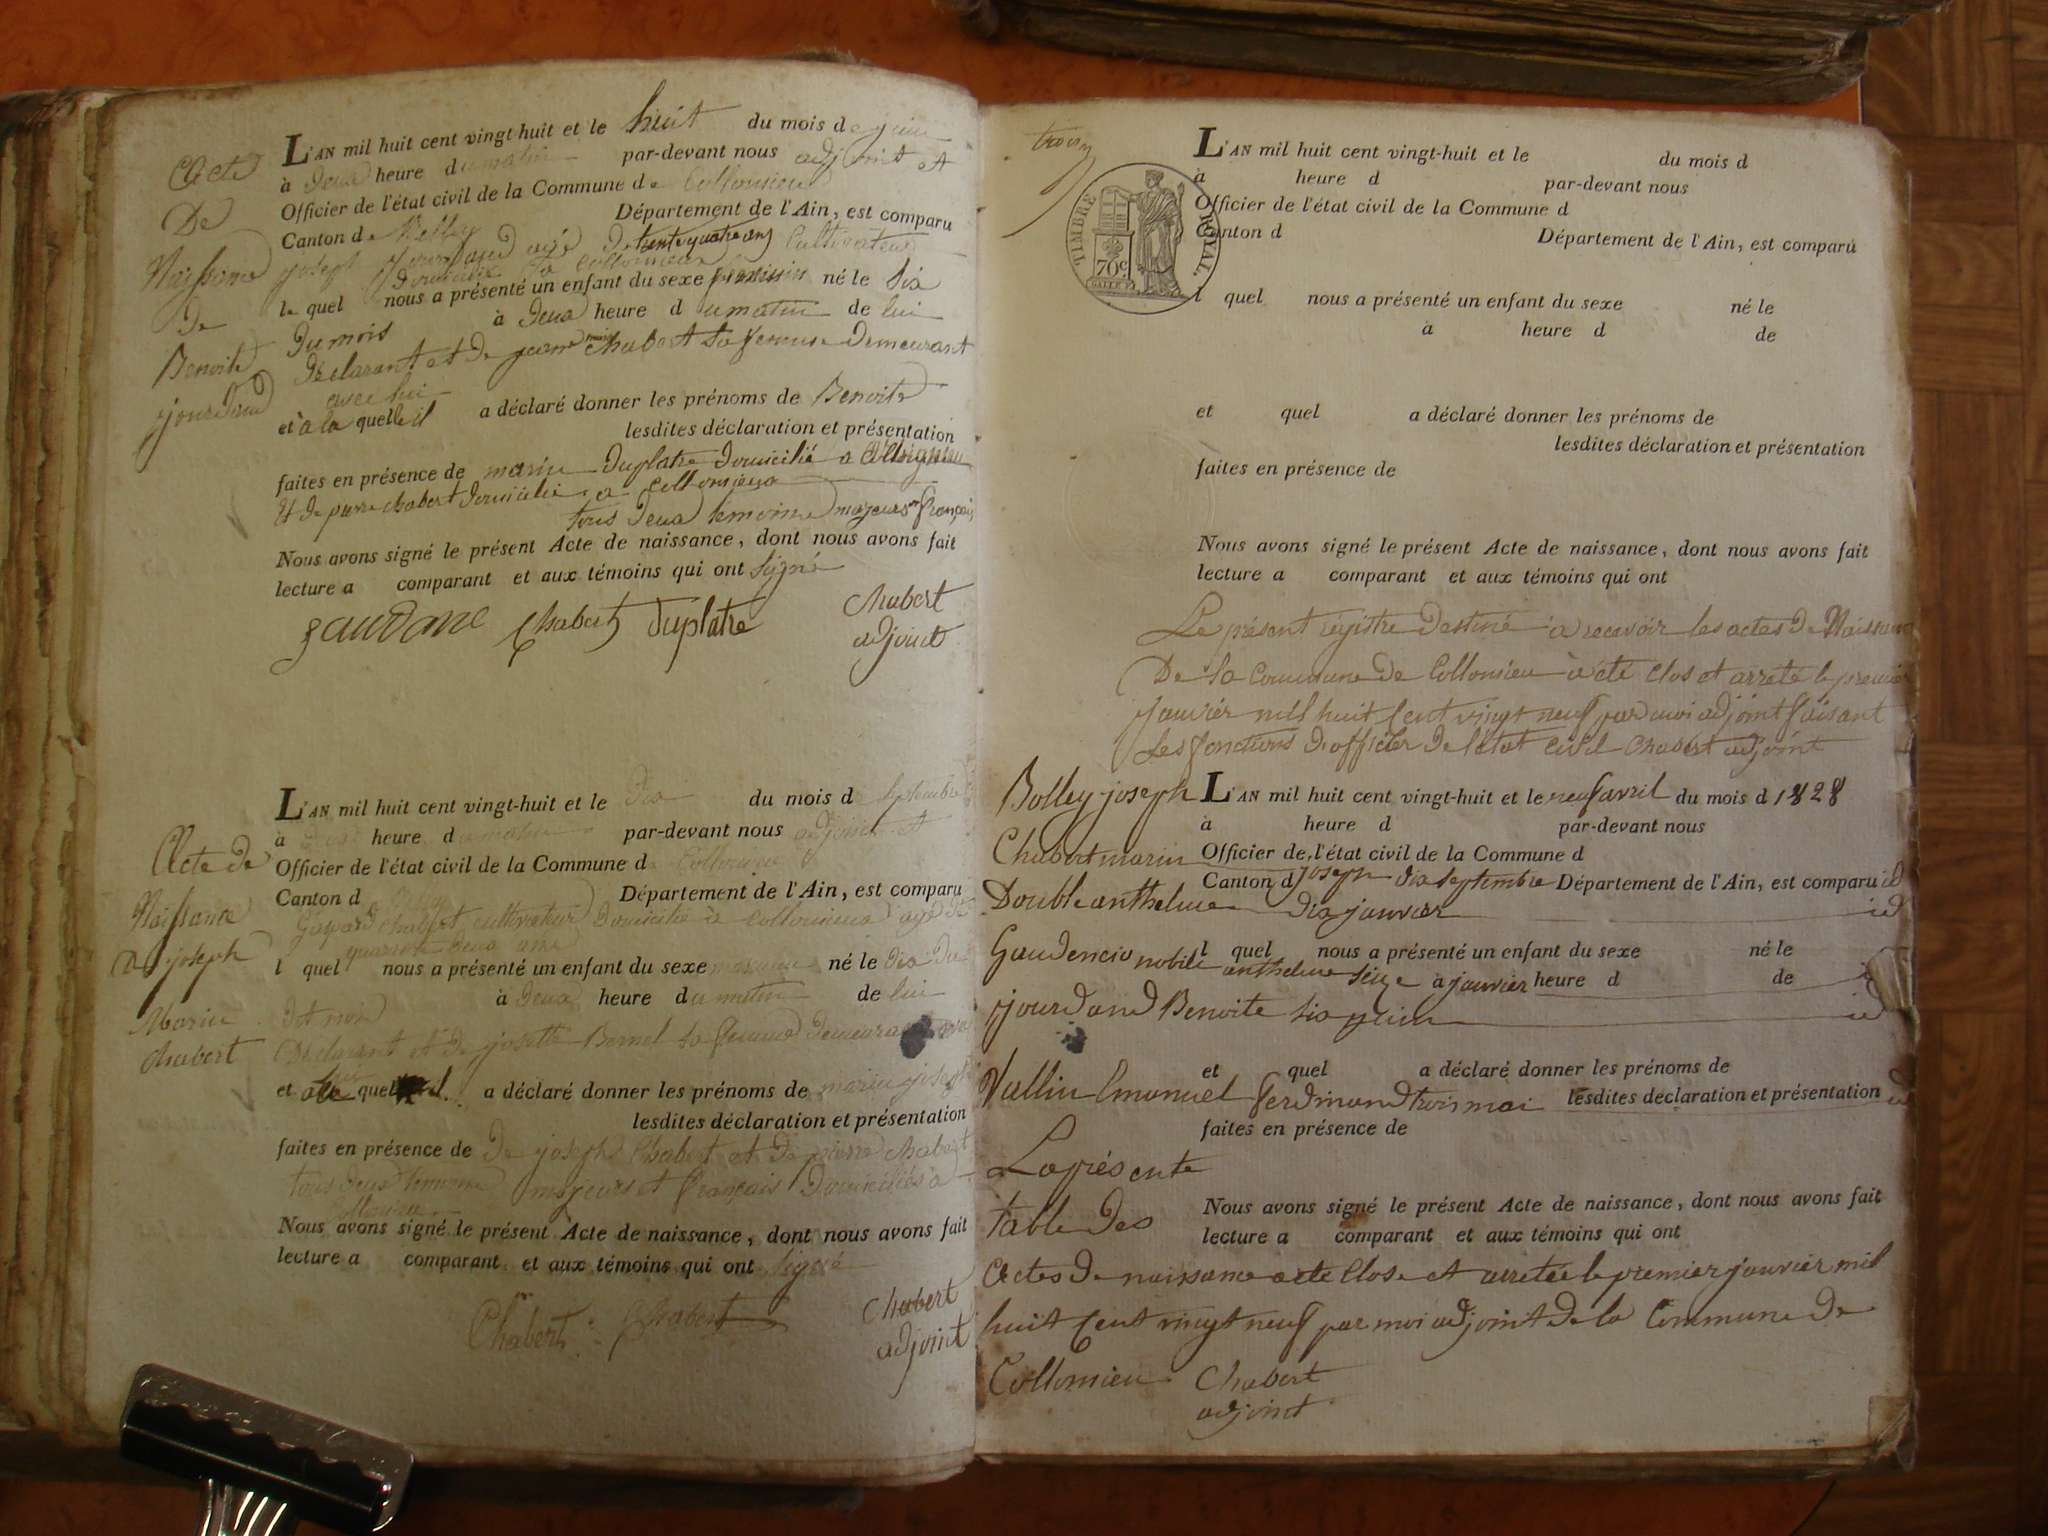 Acte
De
Naissance
De
Benoite
jourdand
L'AN mil huit cent vingt-huit et le huit du mois de juin
à deux heure du matin par-devant nous adjoint et
Officier de l'état civil de la Commune de Collomieu
Canton de Belley Département de l'Ain, est comparu
joseph jourdand agé de trente quatre ans Cultivateur
domicilié à Collomieux
le quel nous a présenté un enfant du sexe feminin né le six
du mois à deux heure du matin de lui
déclarant et de jeanne marie chabert sa femme demeurant
avec lui
et à la quelle il a déclaré donner les prénoms de Benoite
lesdites déclaration et présentation
faites en présence de marin duplatre domicilié a
Et de pierre chabert domicilié a Collomieux
tous deux temoins majeurs et français
Nous avons signé le présent Acte de naissance, dont nous avons fait
lecture a comparant et aux témoins qui ont signé
Chabert duplatre chabert
adjoint
Acte de
Naissance
De joseph
Marin
chabert
L'AN mil huit cent vingt-huit et le dix du mois d septembre
à heure du matin par-devant nous adjoint et
Officier de l'état civil de la Commune de Collomieu
Canton d Département de l'Ain, est comparu
Gaspard chabert cultivateur domicilié à Collomieux agé de
quarante deux ans
l quel nous a présenté un enfant du sexe masculin né le dix du
dit mois à deux heure du matin de lui
Déclarant et de josette Bernel sa femme demeurant
et quel a déclaré donner les prénoms de marin joseph
lesdites déclaration et présentation
faites en présence de De joseph Chabert et de pierre chabert
tous deux temoins majeurs et français domiciliés à
Collomieu
Nous avons signé le présent Acte de naissance, dont nous avons fait
lecture a comparant et aux témoins qui ont signé
Chabert Chabert chabert
adjoint
trois
TIMBRE ROYAL
70c
L'AN mil huit cent vingt-huit et le du mois d
à heure d par-devant nous
Officier de l'état civil de la Commune d
Canton d Département de l'Ain, est comparu
l quel nous a présenté un enfant du sexe né le
à heure d de
et quel a déclaré donner les prénoms de
lesdites déclaration et présentation
faites en présence de
Nous avons signé le présent Acte de naissance, dont nous avons fait
lecture a comparant et aux témoins qui ont
Le présent registre destiné à recevoir les actes de Naissance
De la Commune de Collomieu à été clos et arreté le premier
janvier mil huit Cent vingt neuf par moi adjoint faisant
Les fonctions d'officier de l'état civil chabert adjoint
Bolley joseph L'AN mil huit cent vingt-huit et le neuf avril du mois d 1828
à heure d par-devant nous
Chabert marin Officier de l'état civil de la Commune d
Canton d joseph dix septembre Département de l'Ain, est comparu id
Double anthelme dix janvier id
l quel nous a présenté un enfant du sexe né le
Gaudencio nobile anthelme seize à janvier heure d de
jourdand Benoite six juin id
et quel a déclaré donner les prénoms de
Vallin Emanuel ferdinand trois mai lesdites déclaration et présentation id
faites en présence de
La présente
table des
Nous avons signé le présent Acte de naissance, dont nous avons fait
lecture a comparant et aux témoins qui ont
Actes de naissance a été Close et arretée le premier janvier mil
huit Cent vingt neuf par moi adjoint de la Commune De
Collomieu Chabert
adjoint